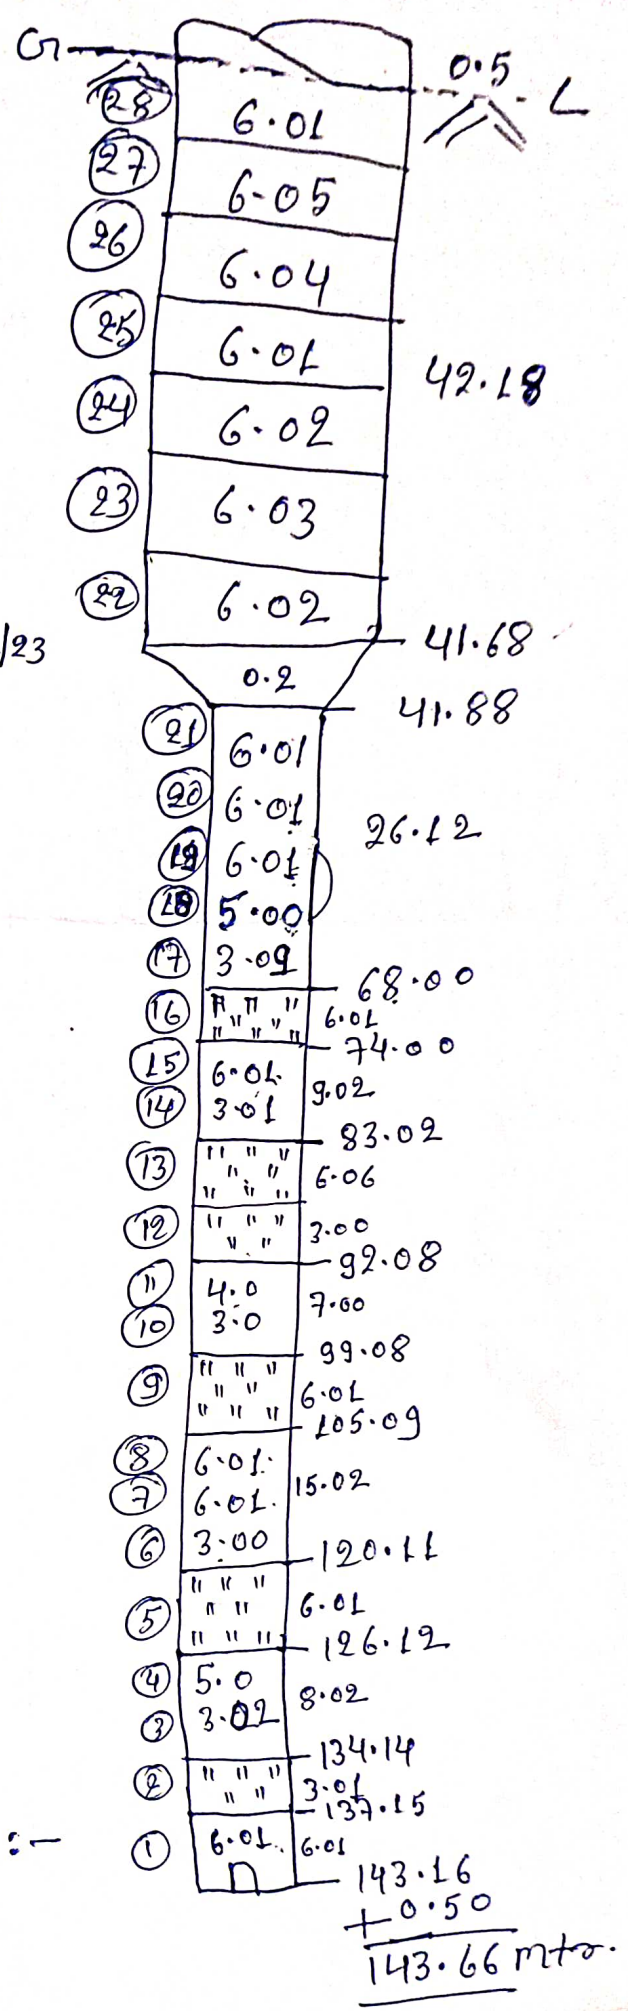 G 0.5 L
28 6.01
27 6.05
26 6.04
25 6.01
42.18
24 6.02
23 6.03
22 6.02
/23 41.68
0.2
41.88
21 6.01
20 6.01
26.12
19 6.01
18 5.00
17 3.09
68.00
16 " " " 6.01
74.00
15 6.01 9.02
14 3.01
83.02
13 6.06
12 3.00
92.08
11 4.0 7.00
10 3.0
99.08
9 6.01
105.09
8 6.01
7 6.01 15.02
6 3.00
120.11
5 6.01
126.12
4 5.0 8.02
3 3.02
134.14
2 3.01
137.15
:- 1 6.01 6.01
143.16
+ 0.50
143.66 mtr.